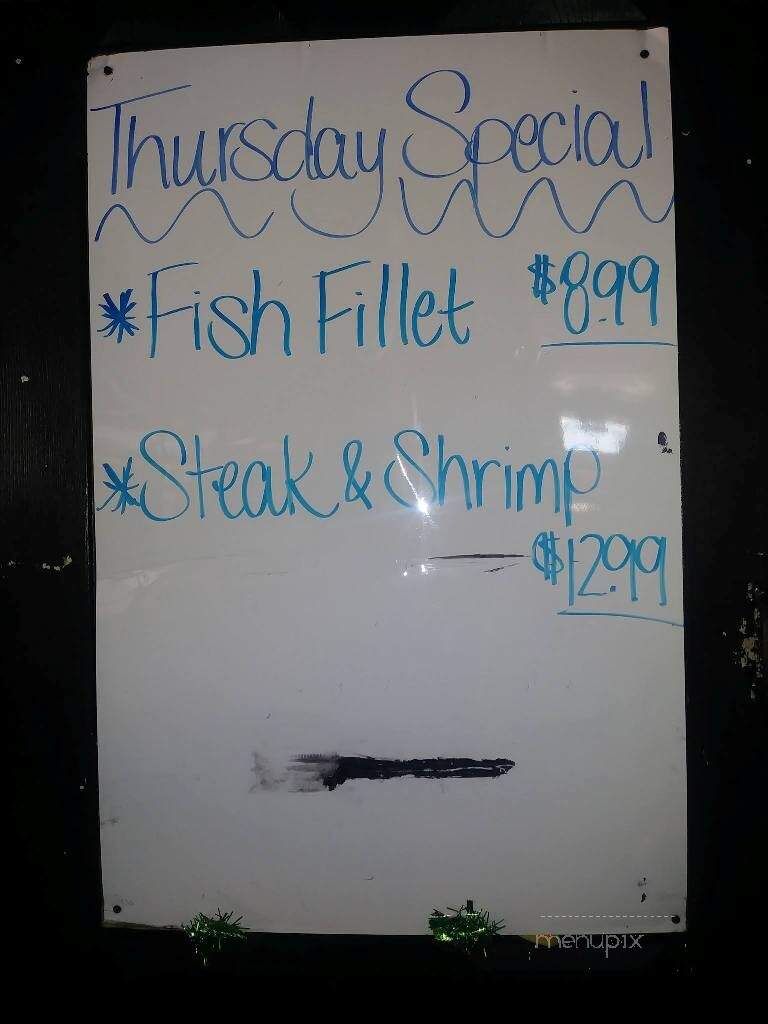 Thursday Special
*Fish Fillet $8.99
*Steak & Shrimp
$12.99
menupix